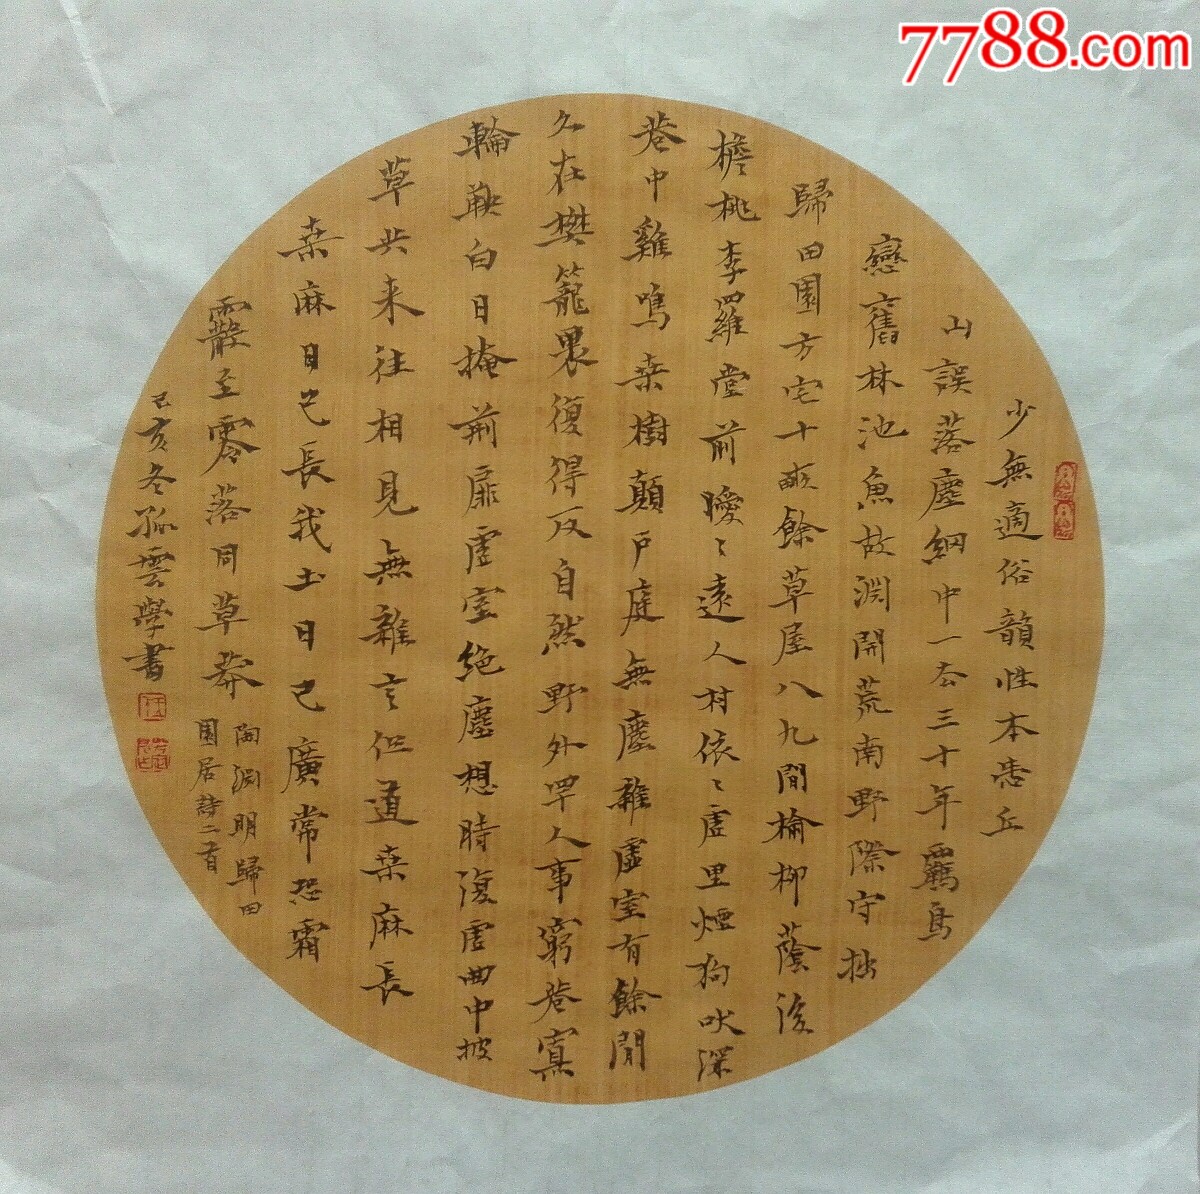 7788.com
少無適俗韻性本愛丘
山誤落塵網中一去三十年羈鳥
戀舊林池魚故淵開荒南野際守拙
歸田園方宅十畝餘草屋八九間榆柳蔭後
檐桃李羅堂前曖々遠人村依々虛里煙狗吠深
巷中雞鳴桒樹顛戶庭無塵雜虛室有餘閒
久在樊籠裏復得反自然野外罕人事窮巷寡
輪鞅白日掩荊扉虛室絕塵想時復虛曲中披
草共来往相見無雜言但道桒麻長
桒麻日已長我土日已廣常恐霜
霰至零落同草莽
陶淵明歸田
園居詩二首
己亥冬孤雲學書